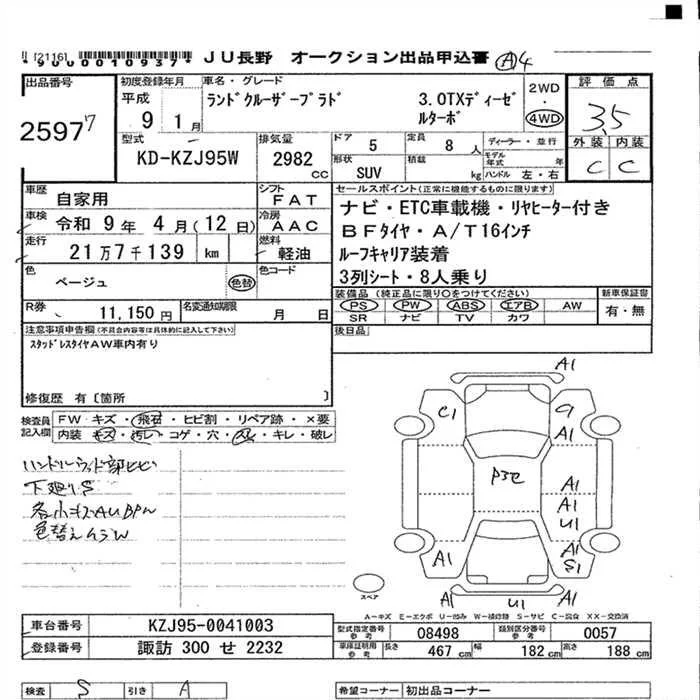 [2116] *9000010937* JU長野 オークション出品申込書 Ⓐ4
出品番号
25977
初度登録年月
平成
9 1月
車名・グレード
ランドクルーザープラド 3.0TXディーゼルターボ
2WD
・
4WD
評価点
3.5
外装 内装
C C
型式
KD-KZJ95W
排気量
2982 CC
ドア 5
定員 8人
形状 SUV
積載 kg
ディーラー・並行
モデル年式 年
ハンドル 左・右
車歴
自家用
シフト
FAT
車検
令和 9年 4月(12日)
冷房
AAC
走行
21万7千139 km
燃料
軽油
色
ベージュ
色替
色コード
R券 11,150円
名変通知期限 月 日
セールスポイント(正常に機能するものに限ります)
ナビ・ETC車載機・リヤヒーター付き
BFタイヤ・A/T16インチ
ルーフキャリア装着
3列シート・8人乗り
装備品(純正品に限り○をつけてください)
PS PW ABS エアB AW
SR ナビ TV カワ
新車保証書
有・無
後日品
注意事項申告欄(不具合内容等は具体的に記入して下さい)
スタッドレスタイヤAW車内有り
修復歴 有〔箇所 〕
検査員記入欄
FW キズ・飛石・ヒビ割・リペア跡・×要
内装 キズ・汚レ・コゲ・穴・スレ・キレ・破レ
下廻りS
A1
C1
A1
P3セ
A1
A1
U1
A1
S1
A1
A1
U1
A1
スペア
A-キズ E-エクボ U-凹み W-補修跡 S-サビ C-腐食 XX-交換済
車台番号 KZJ95-0041003
登録番号 諏訪 300 せ 2232
型式指定番号 参考 08498
類別区分番号 参考 0057
車庫証明用 参考 長さ 467cm 幅 182cm 高さ 188cm
検査 S
引き A
希望コーナー 初出品コーナー